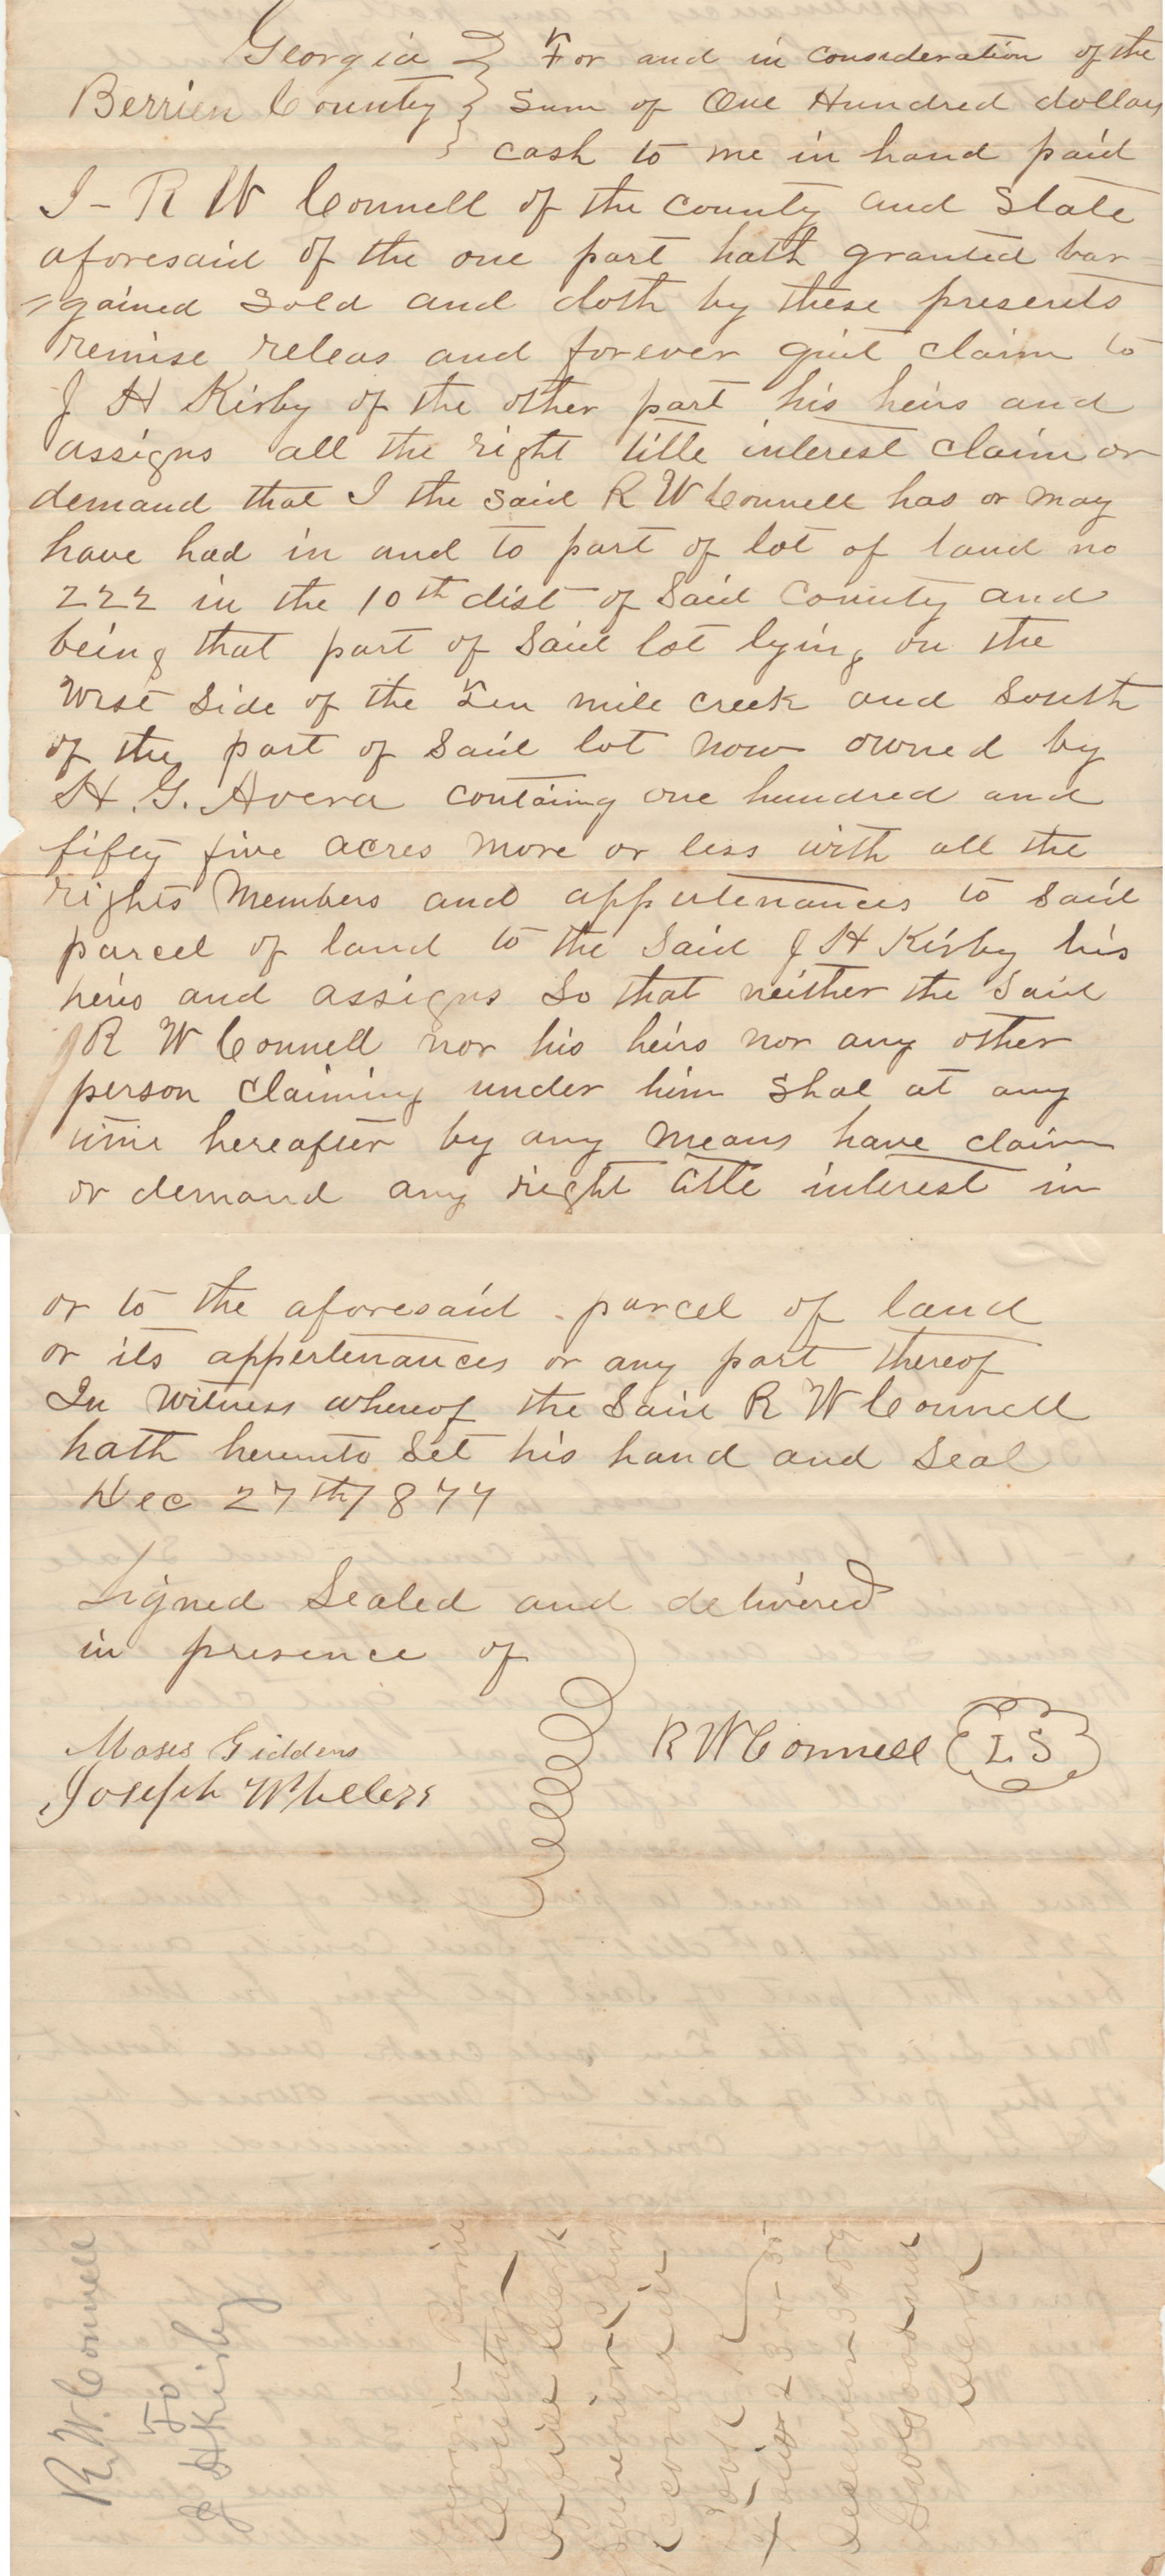 Georgia } For and in consideration of the
Berrien County } Sum of One Hundred dollars
} cash to me in hand paid
I - R W Connell of the county and State
aforesaid of the one part hath granted bar
=gained sold and doth by these presents
remise releas and forever quit claim to
J H Kirby of the other part his heirs and
assigns all the right title interest claim or
demand that I the said R W Connell has or may
have had in and to part of lot of land no
222 in the 10th dist of Said County and
being that part of Said lot lying on the
West Side of the Ten mile creek and South
of the part of Said lot now owned by
H. G. Avera containg one hundred and
fifty five acres more or less with all the
rights Members and appurtenances to Said
parcel of land to the Said J H Kirby his
heirs and assigns So that neither the Said
R W Connell nor his heirs nor any other
person claiming under him shal at any
time hereafter by any means have claim
or demand any right title interest in
or to the aforesaid parcel of land
or its appertenances or any part thereof
In witness whereof the Said R W Connell
hath herunto Set his hand and Seal
Dec 27th 1877
Signed Sealed and delivered
in presence of
Moses Giddens
R W Connell L S
Joseph
R. W. Connell
To
J H Kirby
Georgia
County
office Clerk
Superior
Recorded in
Book
Clerk